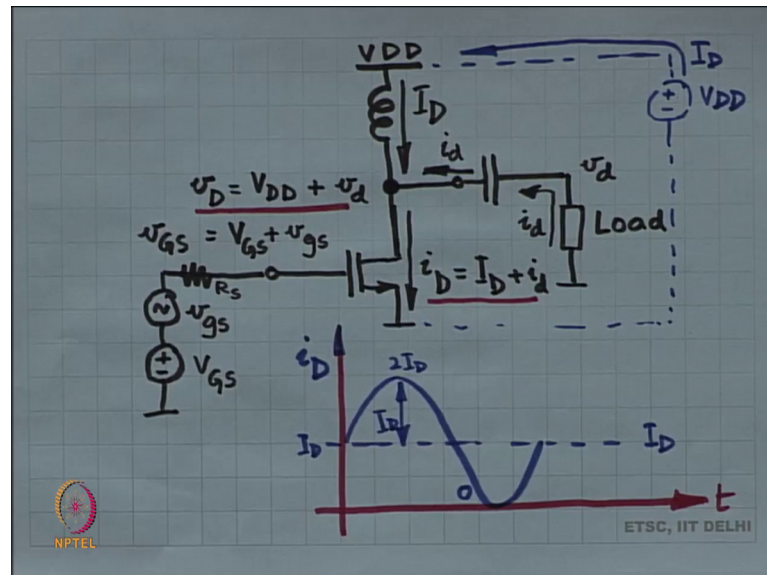 VDD
I_D
I_D
VDD
i_d
v_d
v_D = V_DD + v_d
v_GS = V_GS + v_gs
i_d
Load
R_S
i_D = I_D + i_d
v_gs
V_GS
i_D
2I_D
I_D
I_D
I_D
0
t
NPTEL
ETSC, IIT DELHI